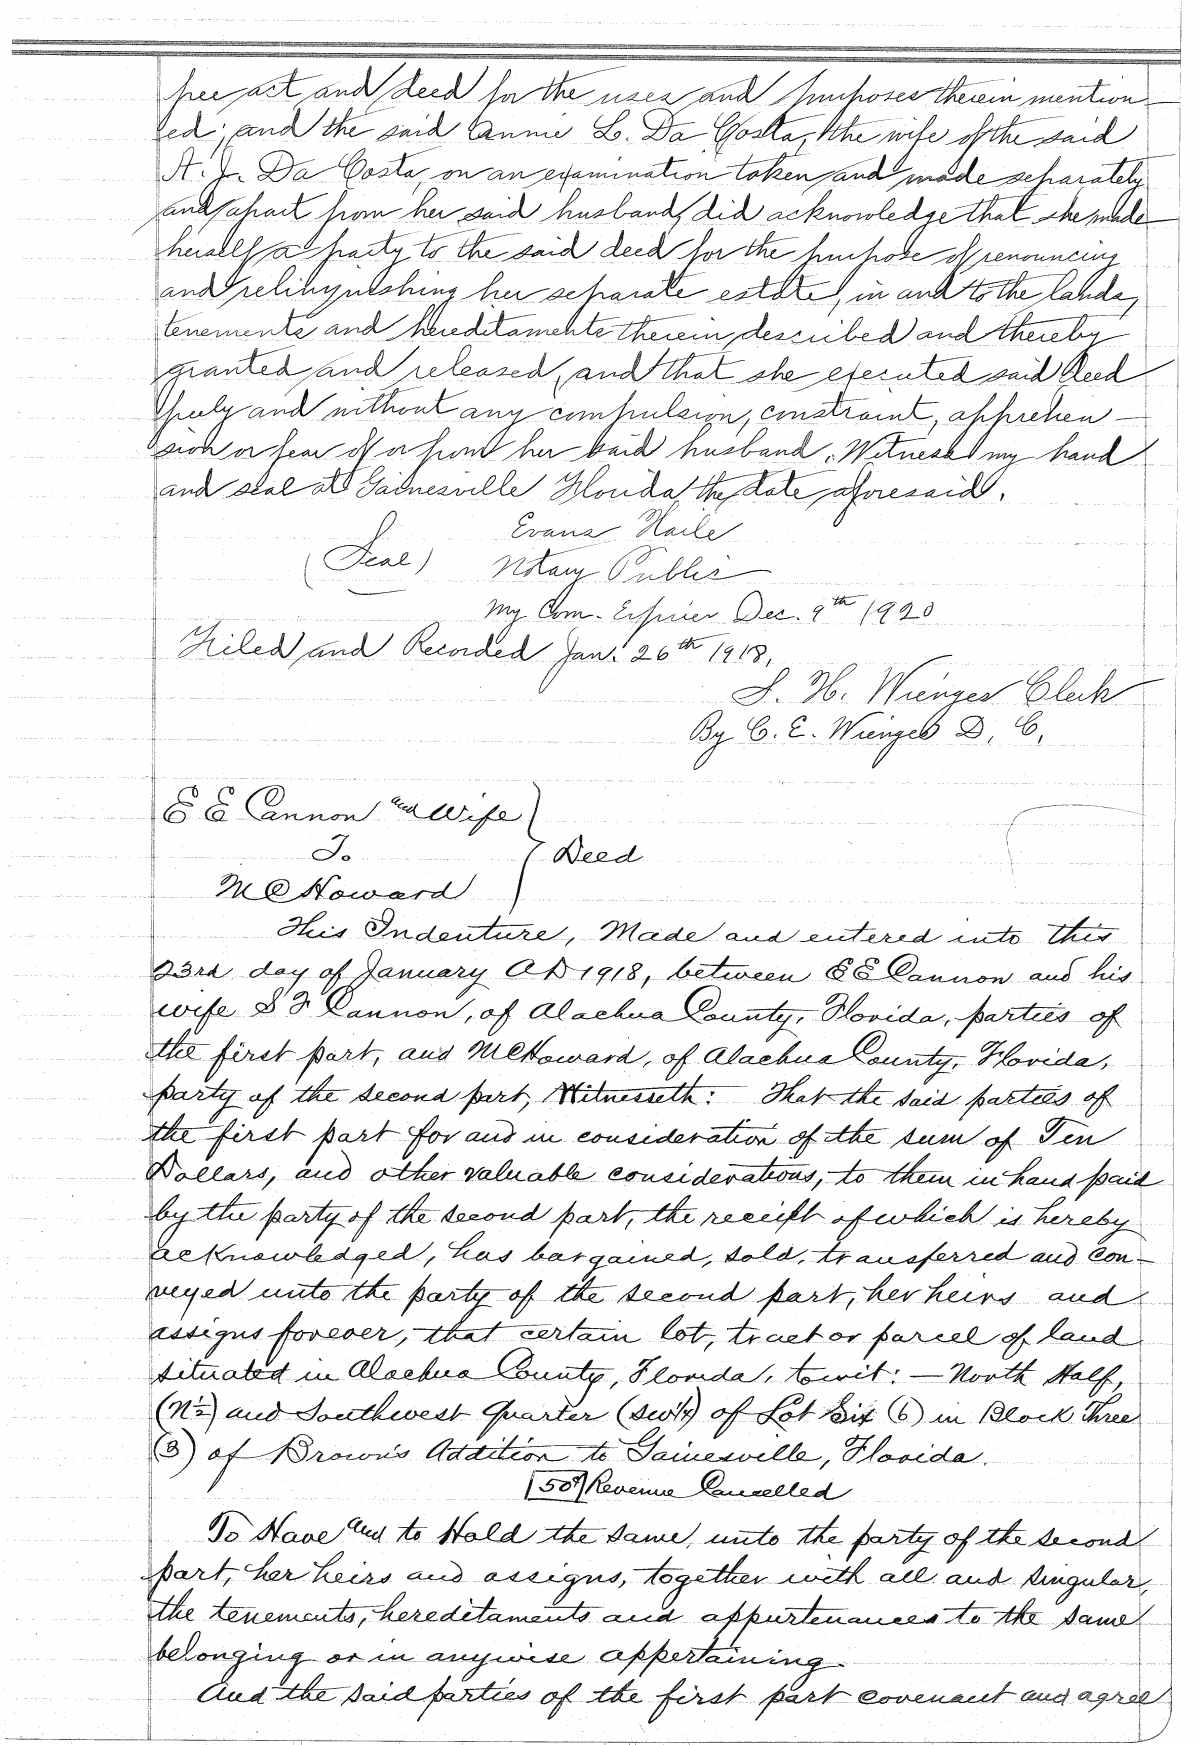 free act and deed for the uses and purposes therein mention
ed; and the said Annie L. Da Costa, the wife of the said
A. J. Da Costa, on an examination taken and made separately
and apart from her said husband, did acknowledge that she made
herself a party to the said deed for the purpose of renouncing
and relinquishing her separate estate, in and to the lands,
tenements and hereditaments therein described and thereby
granted and released, and that she executed said deed
freely and without any compulsion, constraint, apprehen-
sion or fear of or from her said husband. Witness my hand
and seal at Gainesville Florida the date aforesaid.
Evans Haile
(Seal) Notary Public
My Com. Expires Dec. 9th 1920
Filed and Recorded Jan. 26th 1918,
S. H. Wienges Clerk
By C. E. Wienges D. C.
E E Cannon and Wife
To } Deed
M C Howard
This Indenture, Made and entered into this
23rd day of January A D 1918, between E E Cannon and his
wife S F Cannon, of Alachua County, Florida, parties of
the first part, and M C Howard, of Alachua County, Florida,
party of the second part, Witnesseth: That the said parties of
the first part for and in consideration of the sum of Ten
Dollars, and other valuable considerations, to them in hand paid
by the party of the second part, the receipt of which is hereby
acknowledged, has bargained, sold, transferred and con-
veyed unto the party of the second part, her heirs and
assigns forever, that certain lot, tract or parcel of land
situated in Alachua County, Florida, towit: - North Half,
(N½) and Southwest Quarter (SW¼) of Lot Six (6) in Block Three
(3) of Brown's Addition to Gainesville, Florida.
50¢ Revenue Cancelled
To Have and to Hold the same, unto the party of the second
part, her heirs and assigns, together with all and singular,
the tenements, hereditaments and appurtenances to the same
belonging or in anywise appertaining.
And the said parties of the first part covenant and agree